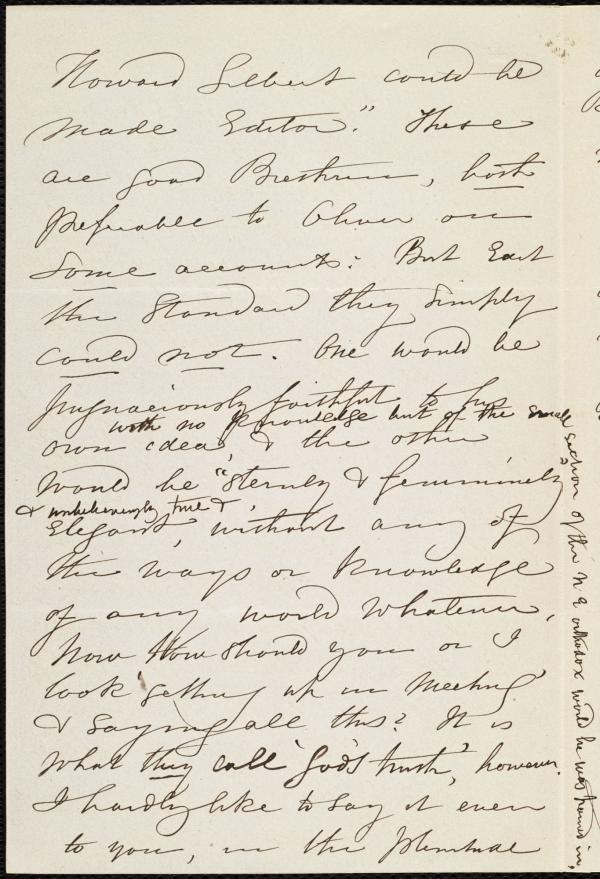 Howard Gilbert could be
made Editor." These
are good Brethren, both
preferable to Oliver on
some accounts: But Edit
the Standard they simply
could not. One would be
pugnaciously faithful to his
with no knowledge but of the small
own idea, & the other
would be "sternly & femininely
& unbelievingly true &
Elegant, without any of
the ways or knowledge
of any world whatever.
Now How should you or I
look getting up in Meeting
& saying all this? It is
what they call 'God's truth', however.
I hardly like to say it even
to you, in the plenitude
section of the N E orthodox world he was trained in,